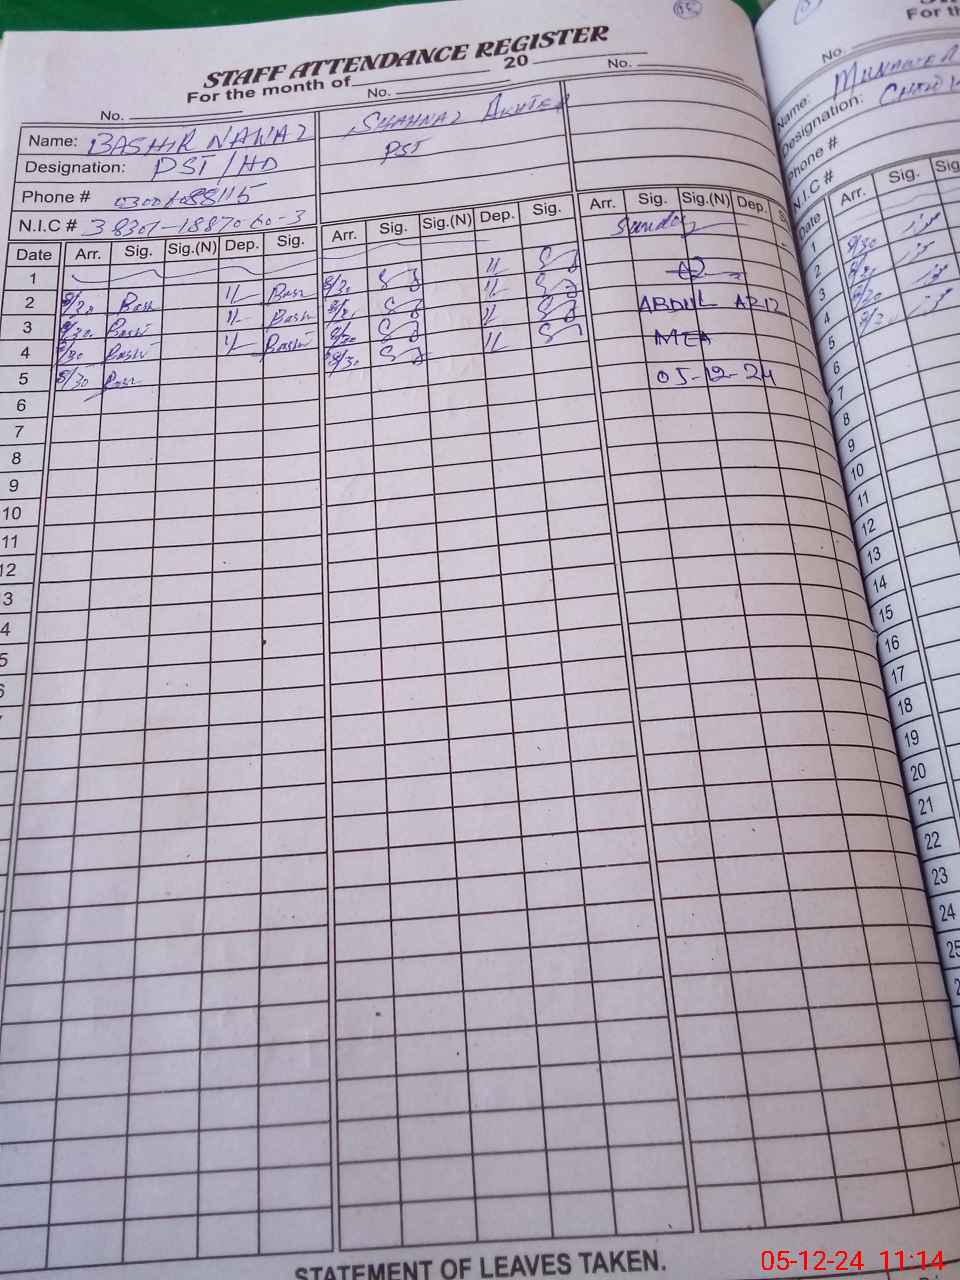 STAFF ATTENDANCE REGISTER
For the month of 20
No. No. No.
Name: BASHIR NAWAZ SHAHNAZ AKHTER
Designation: PST/HD PST
Phone #
N.I.C #
Date Arr. Sig. Sig.(N) Dep. Sig. Arr. Sig. Sig.(N) Dep. Sig. Arr. Sig. Sig.(N) Dep. S
1 Sunday
2 8/30 Bash 11 Bash 8/30 11
3 8/30 Bash 11 Bash 11 ABDUL AZIZ
4 8/30 Bash 11 Bash 8/30 11 MEA
5 8/30 Bash 8/30 11 05-12-24
6
7
8
9
10
11
12
3
4
5
6
STATEMENT OF LEAVES TAKEN.
For th
No.
Name: MUNAWER
Designation:
Phone #
N.I.C #
Date Arr. Sig. Sig
1 8/30
2
3 8/30
4
5
6
7
8
9
10
11
12
13
14
15
16
17
18
19
20
21
22
23
24
25
2
05-12-24 11:14